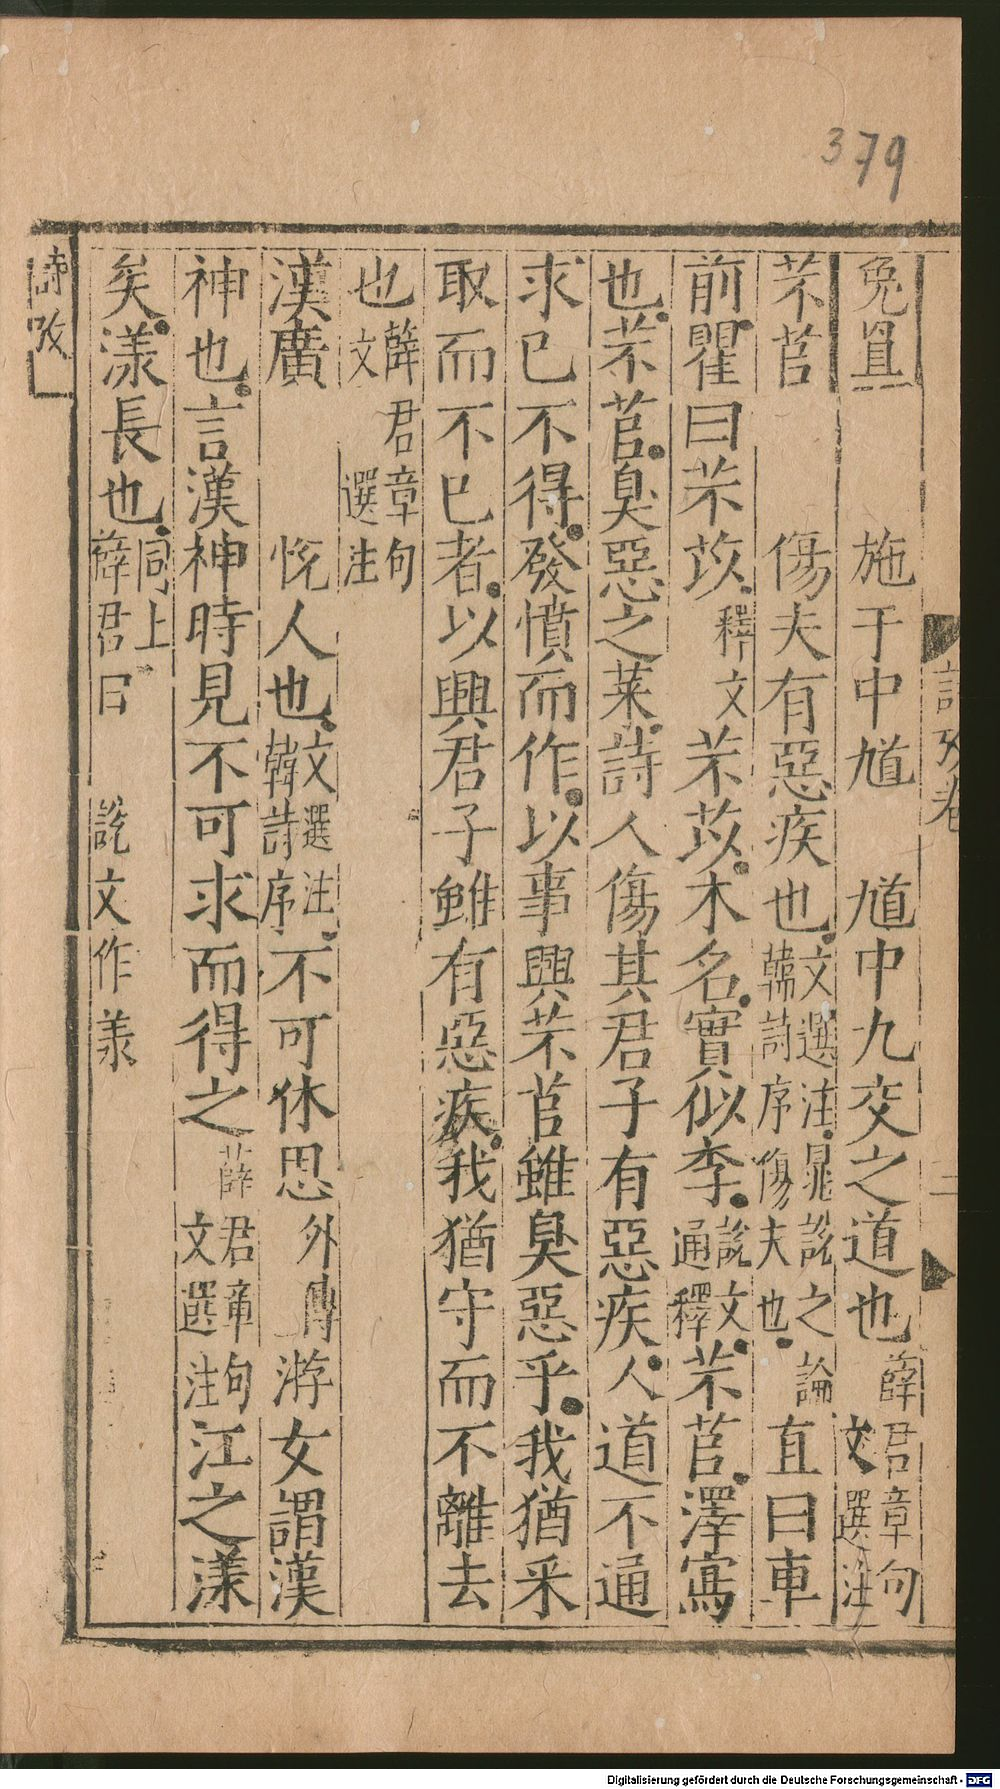 379
詩攷卷
二
兔罝 施于中馗 馗中九交之道也 薛君章句 文選注
芣苢 傷夫有惡疾也 文選注 韓詩序 晁說之論 傷夫也 直曰車
前瞿曰芣苡 釋文 芣苡木名實似李 說文 通釋文 芣苢澤寫
也芣苢臭惡之菜詩人傷其君子有惡疾人道不通
求已不得發憤而作以事興芣苢雖臭惡乎我猶采
取而不已者以興君子雖有惡疾我猶守而不離去
也 薛君章句 文選注
漢廣 悅人也 文選注 韓詩序 不可休思 外傳 游女謂漢
神也言漢神時見不可求而得之 薛君章句 文選注 江之漾
矣漾長也 同上 薛君曰 說文作羕
詩攷
Digitalisierung gefördert durch die Deutsche Forschungsgemeinschaft - DFG